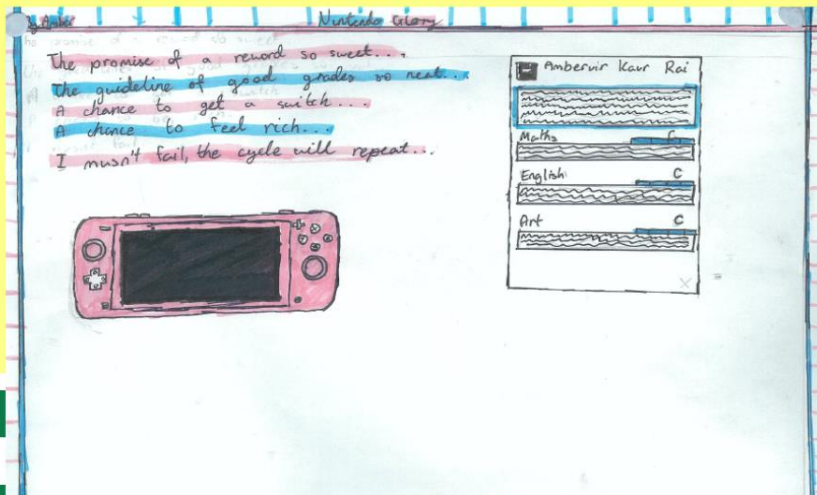 By Amber
Nintendo Glory
The promise of a reward so sweet...
The guideline of good grades so neat...
A chance to get a switch....
A chance to feel rich...
I musn't fail, the cycle will repeat...
Ambervir Kaur Rai
Maths C
English C
Art C